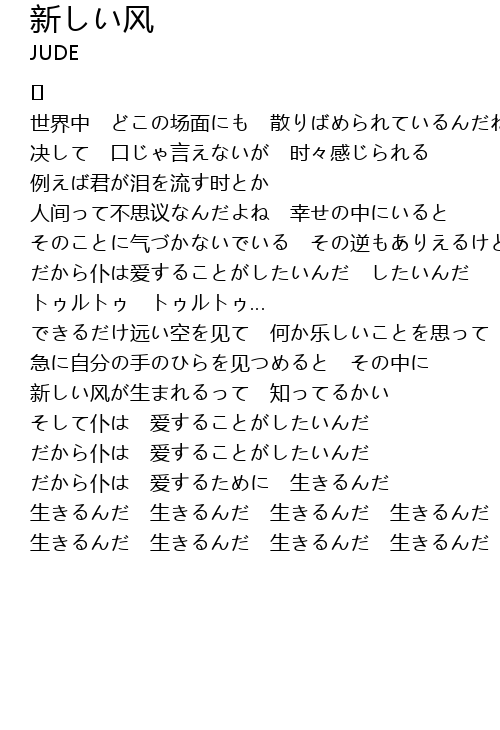 新しい风
JUDE
世界中　どこの场面にも　散りばめられているんだね
决して　口じゃ言えないが　时々感じられる
例えば君が泪を流す时とか
人间って不思议なんだよね　幸せの中にいると
そのことに气づかないでいる　その逆もありえるけど
だから仆は爱することがしたいんだ　したいんだ
トゥルトゥ　トゥルトゥ…
できるだけ远い空を见て　何か乐しいことを思って
急に自分の手のひらを见つめると　その中に
新しい风が生まれるって　知ってるかい
そして仆は　爱することがしたいんだ
だから仆は　爱することがしたいんだ
だから仆は　爱するために　生きるんだ
生きるんだ　生きるんだ　生きるんだ　生きるんだ
生きるんだ　生きるんだ　生きるんだ　生きるんだ